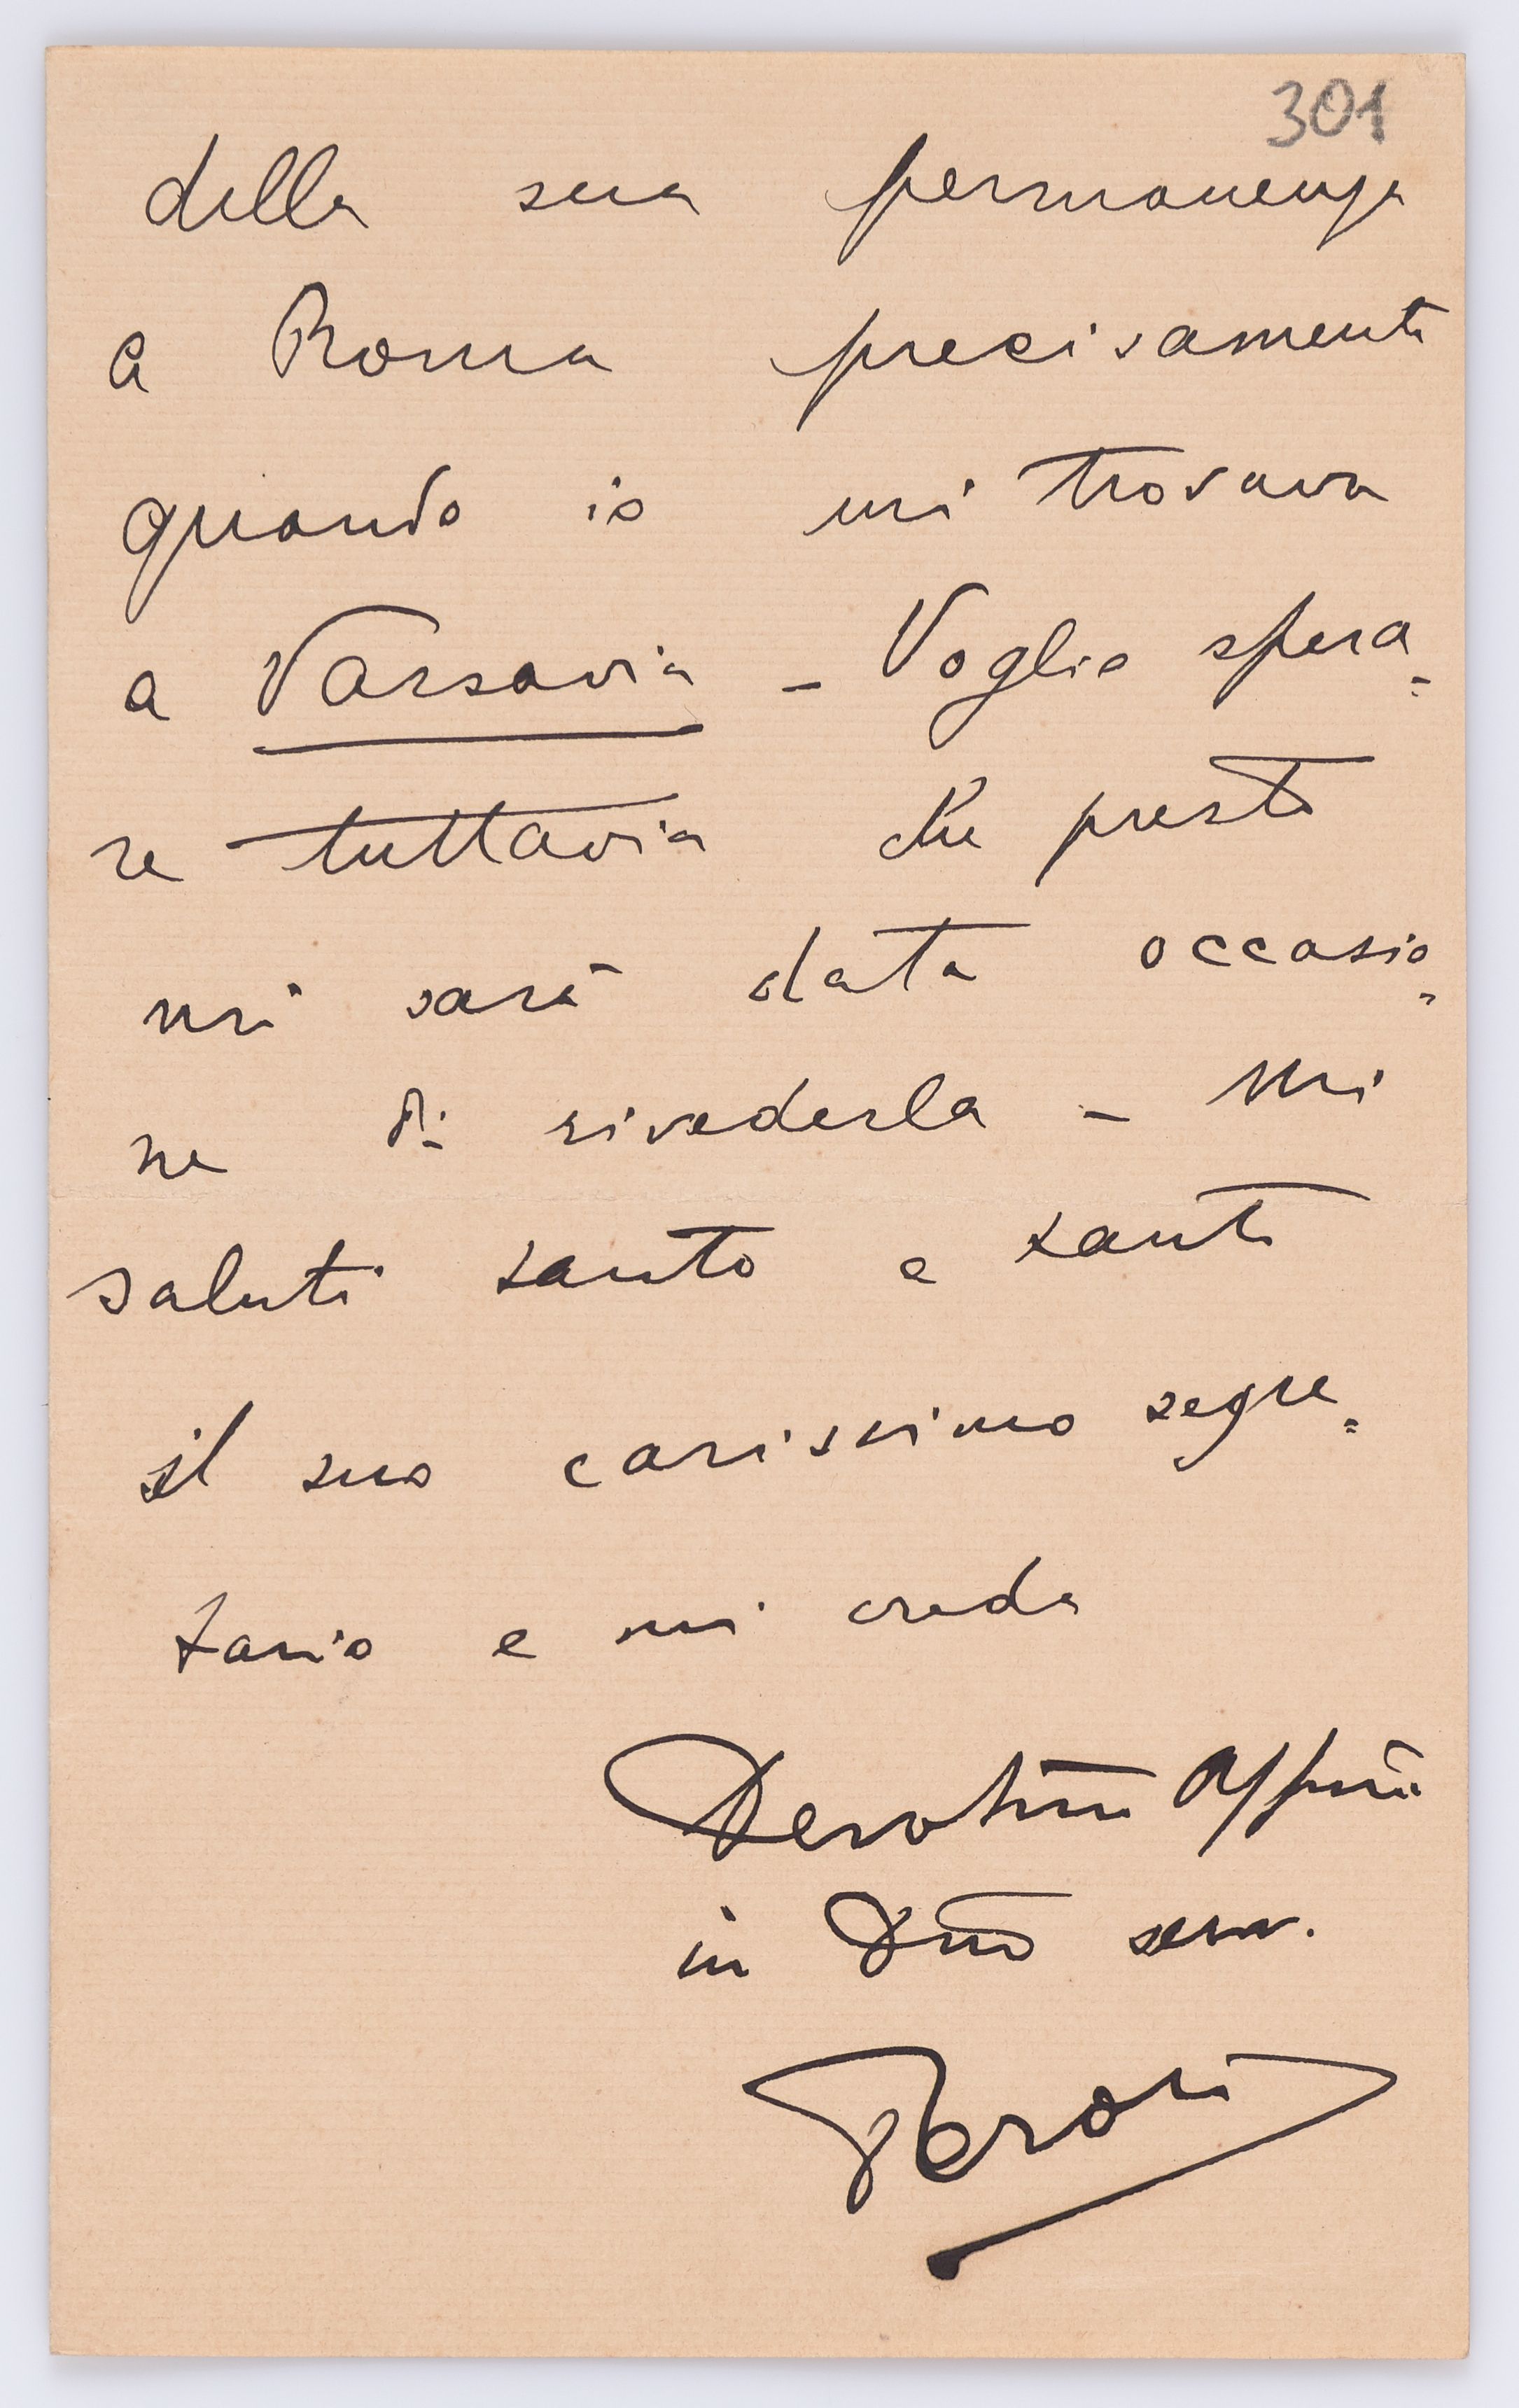 301
della sua permanenza
a Roma precisamente
quando io mi trovava
a Varsavia - Voglio spera-
re tuttavia che presto
mi sarà data occasio=
ne di rivederla - Mi
saluti tanto e tanto
il suo carissimo segre=
tario e mi creda
Devotmo Affmo
in Dno serv.
Perosi